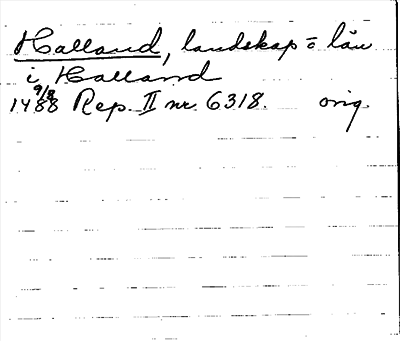 Halland, landskap = län
i Halland
9/8
1488 Rep. II nr. 6318. orig.